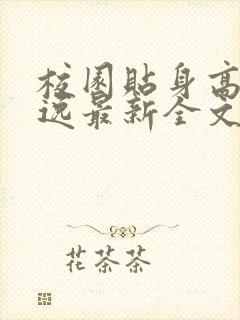 校园贴身高
逸最新全文
花茶茶